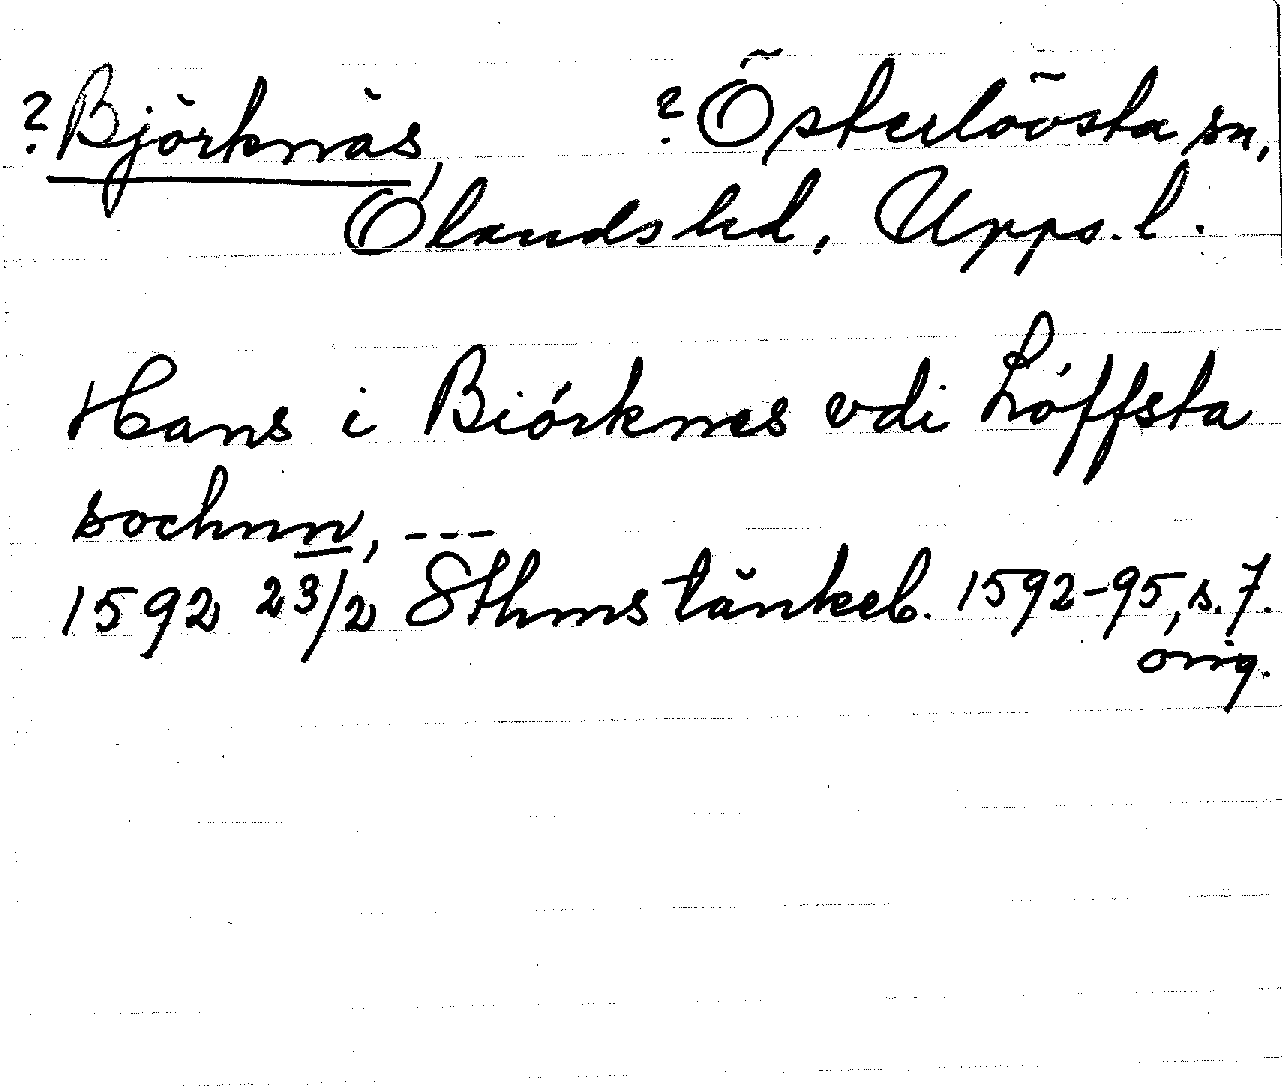 ? Björknäs, ? Österlövsta sn,
Ölands hd, Upps. l.
Hans i Biórknes vdi Lóffsta
sochnn, ---
1592 23/2 Sthms tänkeb. 1592-95, s. 7.
orig.